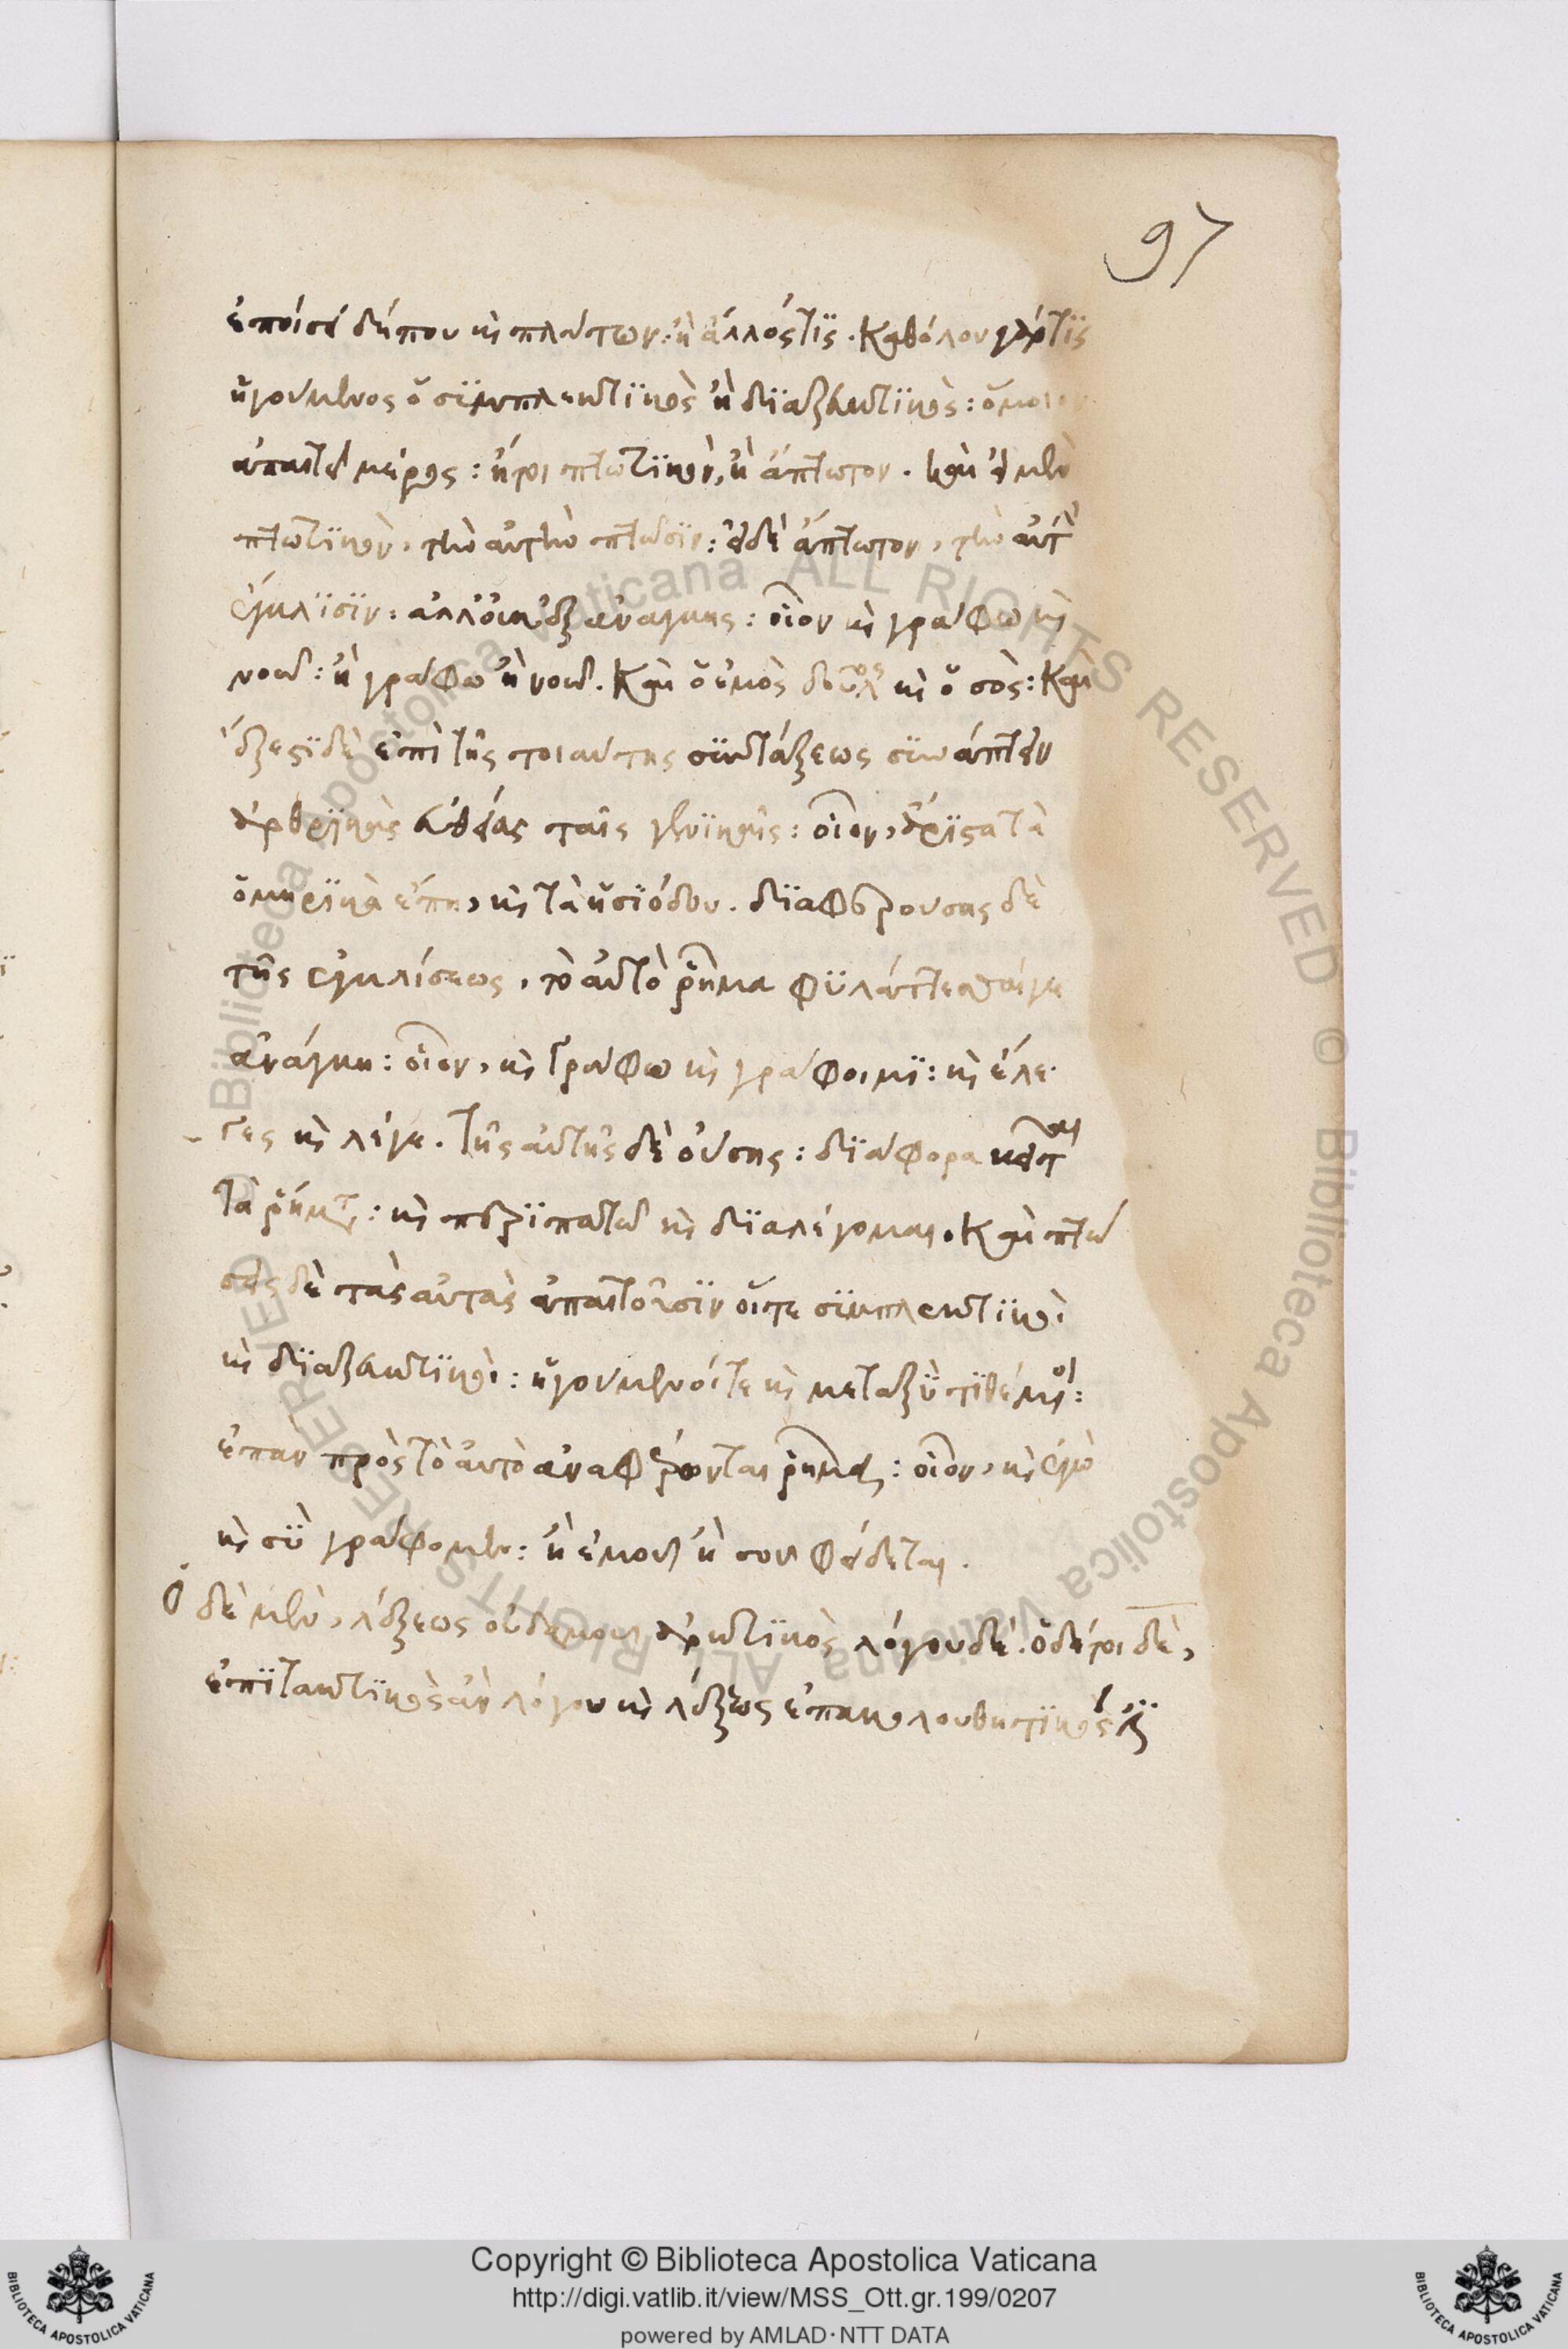 97
ἐποίει δήπου κὶ πλάτων· ἢ ἄλλός τϊς. καθόλου γάρ τϊς
ἡγούμενος ὁ σϋμπλεκτϊκὸς ἢ δϊαζευκτϊκὸς: ὅμοιον
ἀπαιτεῖ μέρος: ἤτοι πτωτϊκὸν, ἢ ἄπτωτον. καὶ εἰ μὲν
πτωτϊκὸν, τὴν αὐτὴν πτῶσϊν: εἰ δὲ ἄπτωτον, τὴν αὐτ
ἔγκλϊσϊν: ἀλλ' οὐκ ἐξ ἀνάγκης: οἷον κὶ γράφω κὶ
νοῶ: ἢ γράφω ἢ νοῶ. καὶ ὁ ἐμὸς δοῦλος κὶ ὁ σὸς: καὶ
ἔξεστϊ δὲ ἐπὶ τῆς τοιαύτης σϋντάξεως σϋνάπτειν
ἀρθρϊκὰς εὐθείας ταῖς γενϊκαῖς: οἷον, ἄρϊστα τὰ
ὁμηρϊκὰ ἔπη, κὶ τὰ ἡσϊόδου. δϊαφερούσης δὲ
τῆς ἐγκλίσεως, τὸ αὐτὸ ῥῆμα φϋλάττεσθαί γε
ἀνάγκη: οἷον, κὶ γράφω κὶ γράφοιμϊ: κὶ ἔλε
γες κὶ λέγε. τῆς αὐτῆς δὲ οὔσης: δϊάφορα κεῖται
τὰ ῥήματα: κὶ περϊπατῶ κὶ δϊαλέγομαι. καὶ πτώ
σεις δὲ τὰς αὐτὰς ἀπαιτοῦσϊν οἵτε σϋμπλεκτϊκοὶ
κὶ δϊαζευκτϊκοὶ: ἡγούμενοί τε κὶ μεταξὺ τϊθέμενοι:
ἐπὰν πρὸς τὸ αὐτὸ ἀναφέρωνται ῥῆμα: οἷον, κὶ ἐγὼ
κὶ σϋ γράφομεν: ἢ ἐμοῦ ἢ σοῦ φείδεται.
Ὁ δὲ μὲν, λέξεως οὐδαμοῦ ἀρκτϊκὸς λόγου δέ. ὁ δέ τοι δὲ,
ἐπϊτακτϊκὸς ἀεὶ λόγου κὶ λέξεως ἐπακολουθητϊκός
Copyright © Biblioteca Apostolica Vaticana
http://digi.vatlib.it/view/MSS_Ott.gr.199/0207
powered by AMLAD·NTT DATA
BIBLIOTECA APOSTOLICA VATICANA
BIBLIOTECA APOSTOLICA VATICANA
© Biblioteca Apostolica Vaticana ALL RIGHTS RESERVED
© Biblioteca Apostolica Vaticana ALL RIGHTS RESERVED